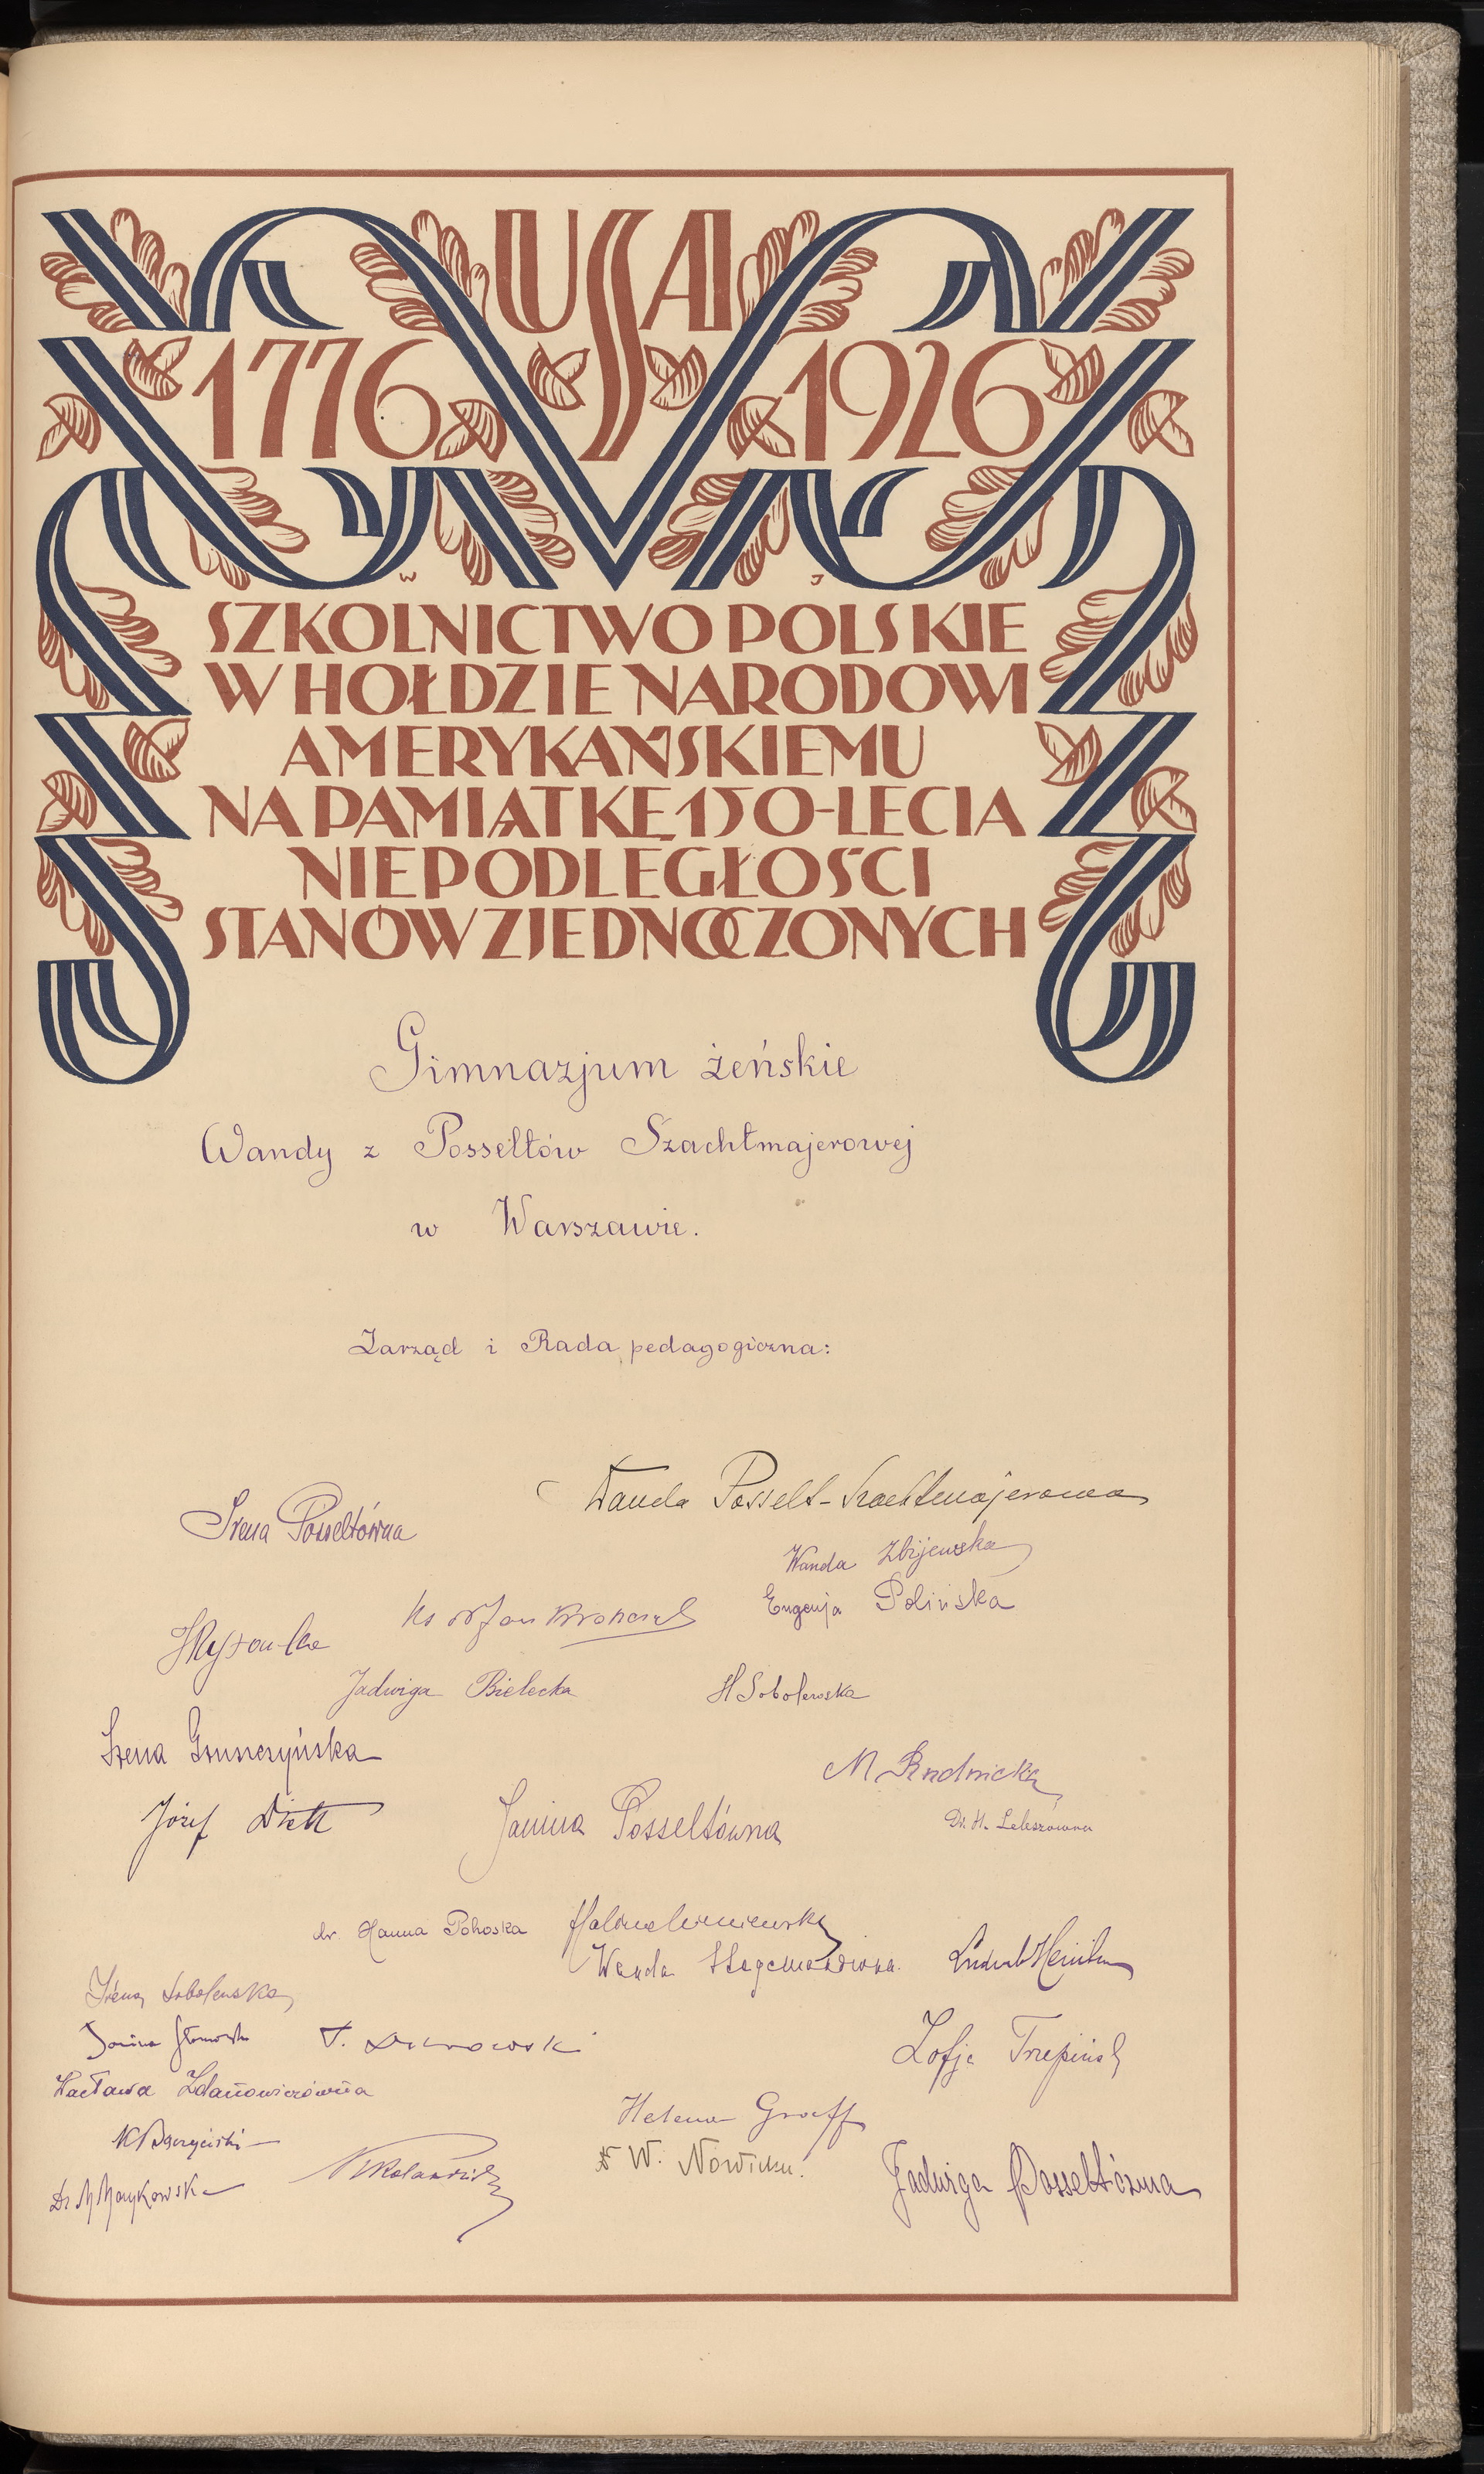 USA
1776 1926
W J
SZKOLNICTWO POLSKIE
W HOŁDZIE NARODOWI
AMERYKAŃSKIEMU
NA PAMIĄTKĘ 150-LECIA
NIEPODLEGŁOŚCI
STANÓW ZJEDNOCZONYCH
Gimnazjum żeńskie
Wandy z Posseltów Szachtmajerowej
w Warszawie.
Zarząd i Rada pedagogiczna:
Wanda Posselt-Szachtmajerowa
Irena Posseltówna
Wanda Zbijewska
Eugenja Polińska
Ks Dr Jan
Jadwiga Bielecka
H Sobolewska
Irena Gruszczyńska
M Rudnicka
Józef
Janina Posseltówna
Dr. H. Leleszówna
dr Hanna Pohoska
Halina
Wanda
Irena Sobolewska
Janina
Zofja
Wacława Zdanowiczówna
Helena Graeff
W. Nowicki
Jadwiga Posseltówna
Dr M